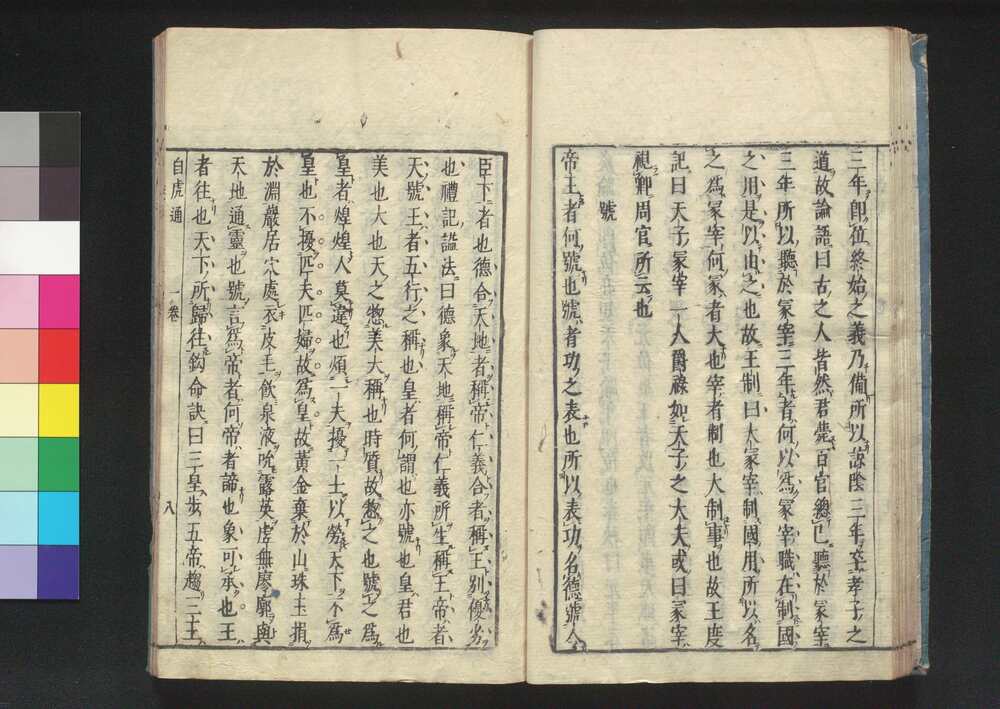 三年卽位終始之義乃備所以諒陰三年卒孝子之
道故論語曰古之人皆然君薨百官總己聽於冢宰
三年所以聽於冢宰三年者何以爲冢宰職在制國
之用是以由之也故王制曰大冢宰制國用所以名
之爲冢宰何冢者大也宰者制也大制事也故王度
記曰天子冢宰一人爵祿如天子之大夫或曰冢宰
視卿周官所云也
號
帝王者何號也號者功之表也所以表功名德號令
臣下者也德合天地者稱帝仁義合者稱王別優劣
也禮記謚法曰德象天地稱帝仁義所生稱王帝者
天號王者五行之稱也皇者何謂也亦號也皇君也
美也大也天之惣美大稱也時質故惣之也號之爲
皇者煌煌人莫違也煩一夫擾一士以勞天下不爲
皇也不擾匹夫匹婦故爲皇故黃金棄於山珠玉捐
於淵巖居穴處衣皮毛飮泉液吮露英虛無廖廓與
天地通靈也號言爲帝者何帝者諦也象可承也王
者往也天下所歸往鈎命訣曰三皇步五帝趨三王
白虎通 一卷 八